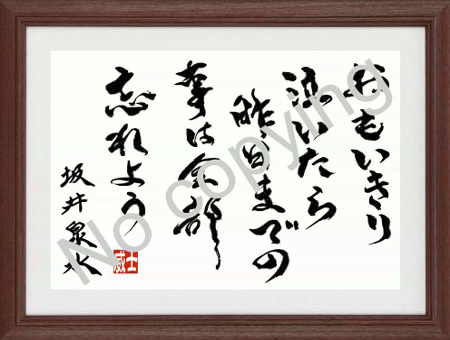 おもいきり
泣いたら
昨日までの
事は全部
忘れよう
坂井泉水
威士
No copying